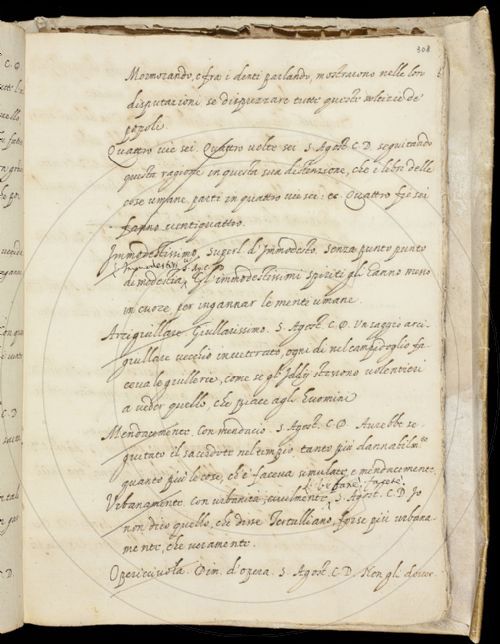 308
Mormorando, e fra i denti parlando, mostravono nelle lor
disputazioni se dispuzzare tutte queste moltizie de
popoli
Quattro vie sei. Quattro volte sei. S. Agost. C. D. seguitando
questa ragione in questa sua distenzione, che è libri delle
cose umane parti in quattro vie sei: etc. Quattro fie sei
fanno venti quattro.
Immodestissimo. Superl. d'Immodesto. Senza punto punto
di modestia. S. Ag. C. D. Gl' immodestissimi spiriti gl' hanno messo
in cuore, per ingannar le menti umane.
Arcigiullare. Giullarissimo. S. Agost. C. D. Un saggio arci-
giullare vecchio invecerato, ogni dì nel campidoglio fa-
ceva le giullerie, come se gl' Iddij stessono volentieri
a veder quello, che piace agli Huomini
Mendacemente. Con mendacio. S. Agost. C. D. Avrebbe se-
guitato il sacerdote nel tempio tanto più dannabilmte
quanto più le cose, ch' e' faceva simulate, e mendacemente.
Urbanamente. Con urbanità, civilmente. S. Agost. C. D. Io
non dico quello, che disse Tertulliano, forse più urbana-
mente, che veramente.
Opericciuola. Dim. d'opera. S. Agost. C. D. Non gl. dover